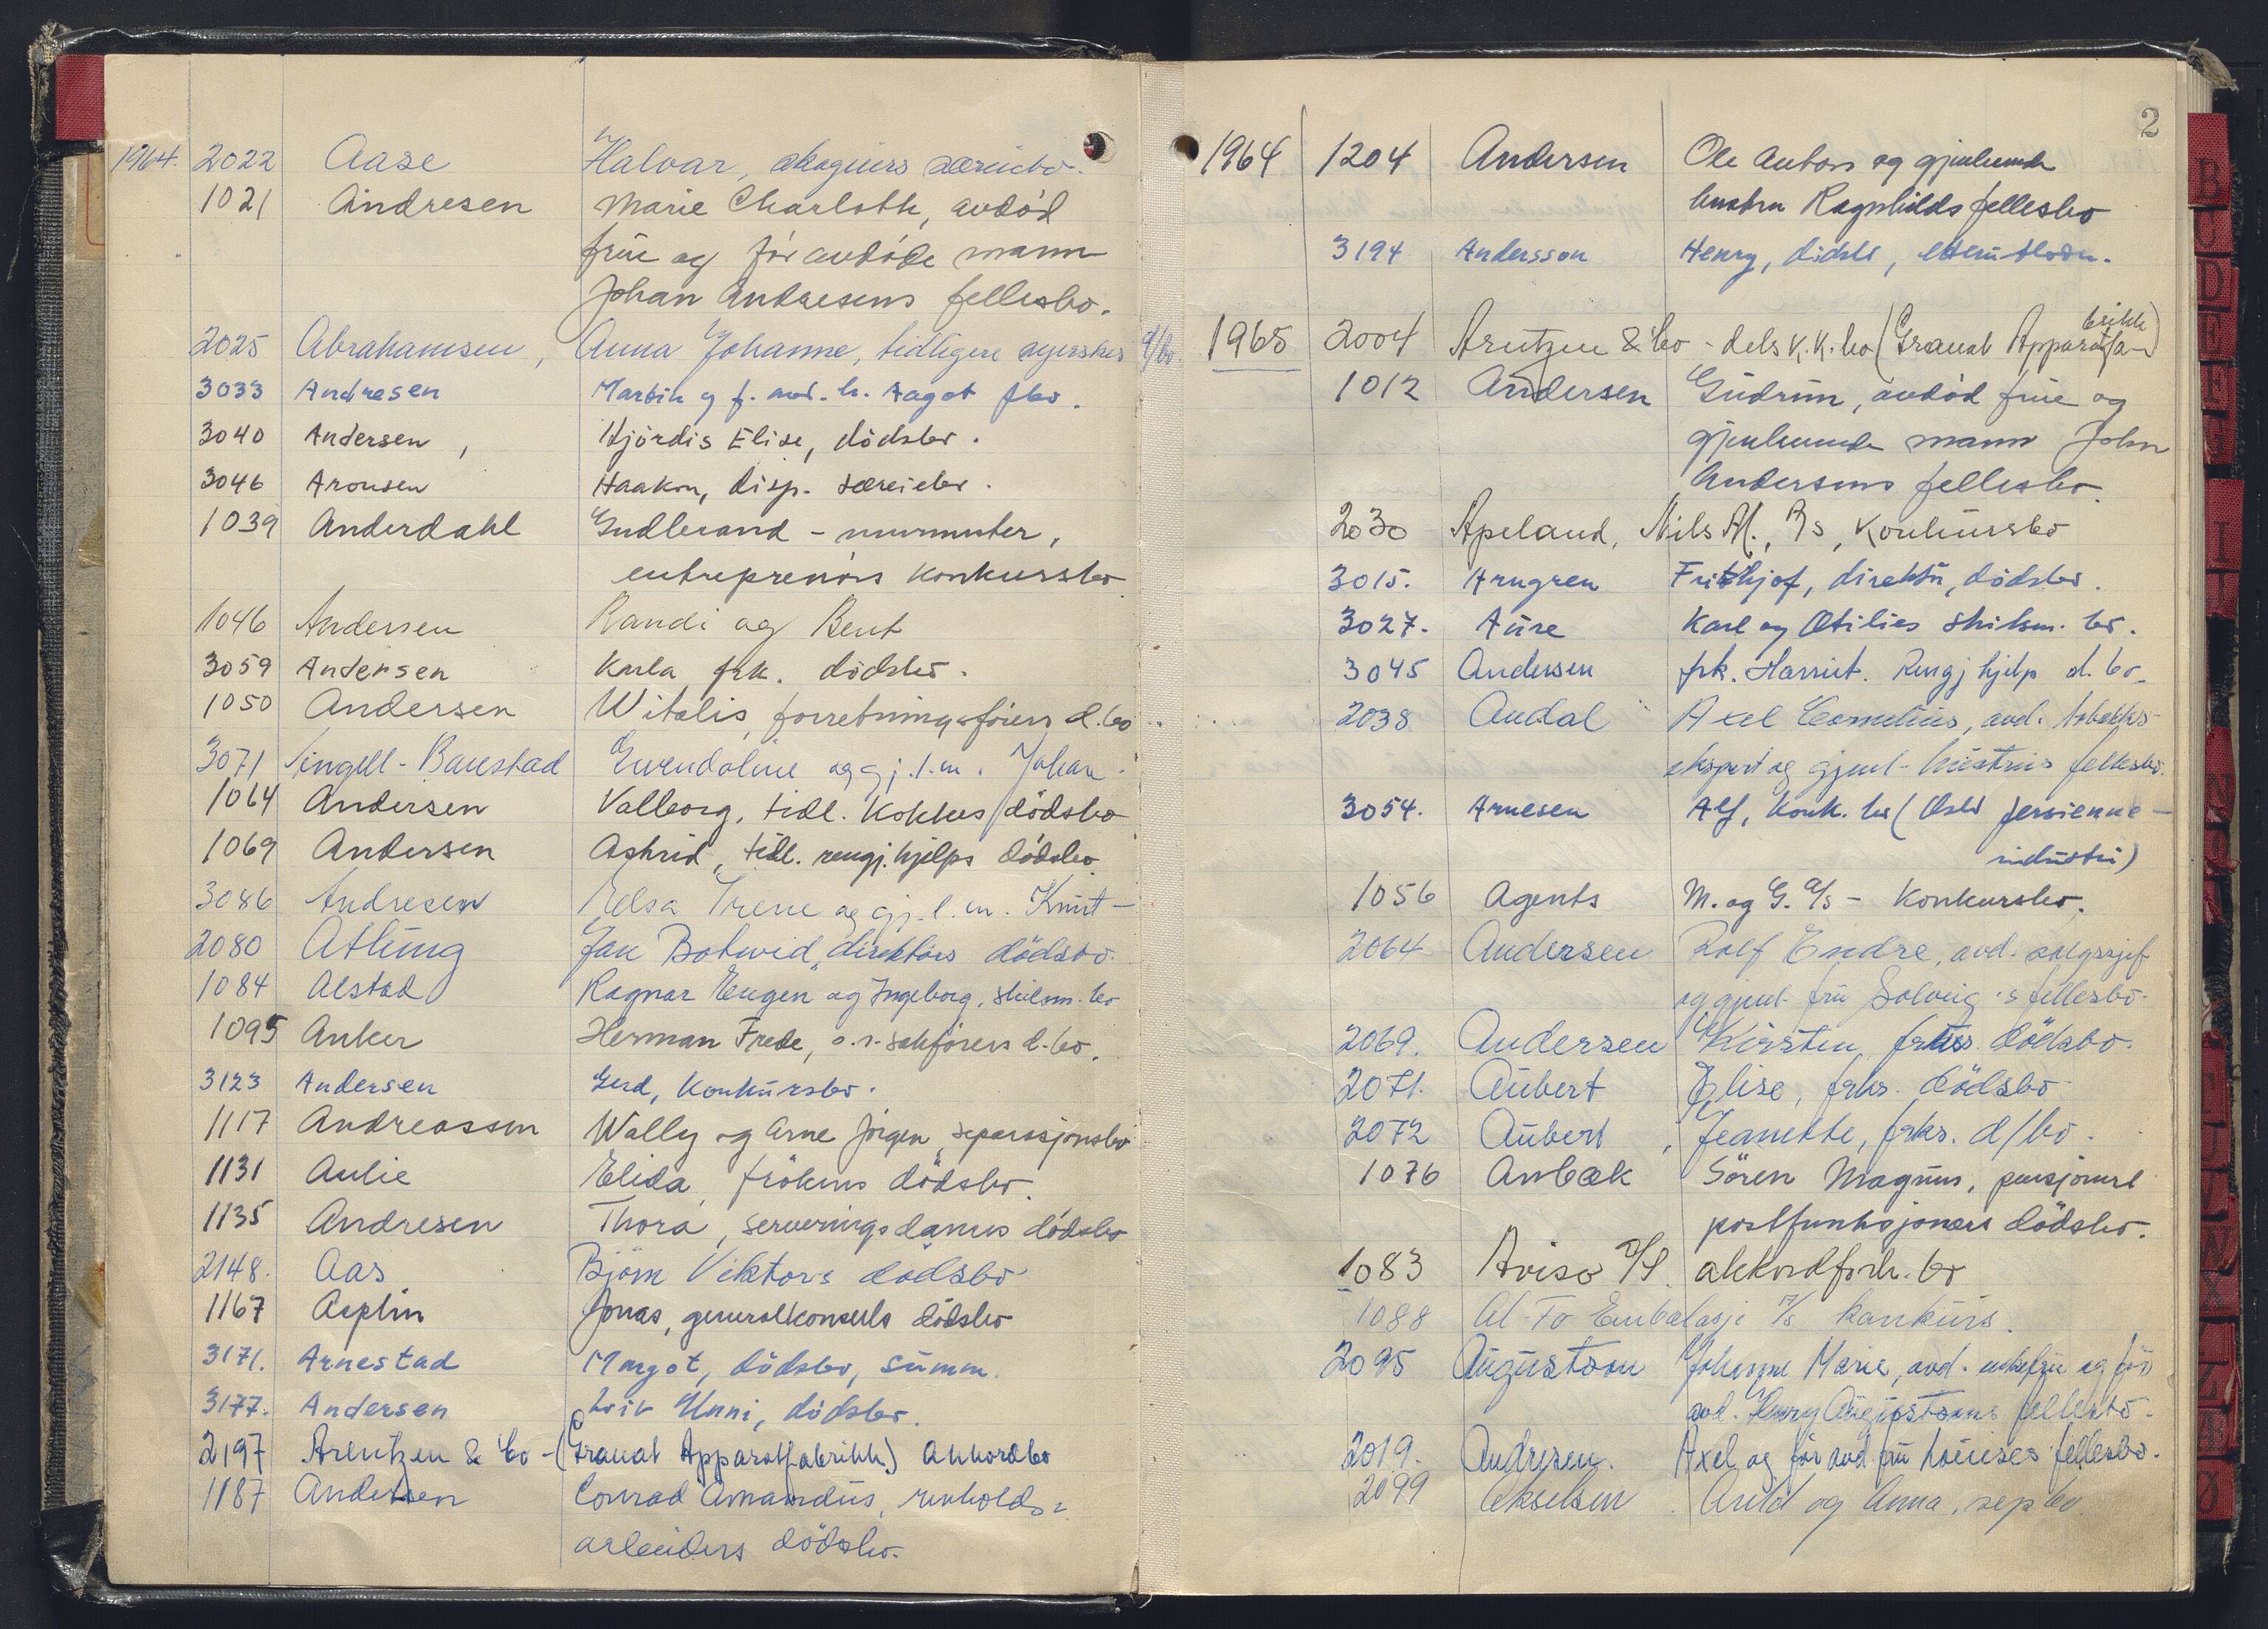 1964. 2022 Aase Halvar, særeiebo.
1021 Andresen Marie Charlotte, avdød
frue og før avdøde mann
Johan Andresens fellesbo.
2025 Abrahamsen, Anna Johanne, tidligere d/bo.
3033 Andresen Martin og f. avd. h. Aagot fbo.
3040 Andersen, Hjördis Elise, dödsbo.
3046 Aronsen Haakon, disp. særeiebo.
1039 Anderdahl Gudbrand - murmester,
entreprenørs konkursbo
1046 Andersen Randi og Bent
3059 Andersen Karla frk. dödsbo.
1050 Andersen Witalis, forretningsførers d.bo
3071 Angell-Baustad Gwendoline og gj.l.m. Johan.
1064 Andersen Valborg, tidl. kokkes dödsbo
1069 Andersen Astrid, tidl. rengj.hjelps dödsbo
3086 Andresen Elsa Irene og gj.l.m. Knut -
2080 Atling Jan Botwid, direktørs dödsbo.
1084 Alstad Ragnar Eugen og Ingeborg, skilsm. bo
1095 Anker Herman Frede, o.r.sakførers d.bo.
3123 Andersen Gerd, konkursbo.
1117 Andreassen Wally og Arne Jörgen, separasjonsbo
1131 Aulie Elida, frökens dödsbo.
1135 Andresen Thora, serveringsdames dödsbo
2148. Aas Björn Viktors dödsbo
1167 Asplin Jonas, generalkonsuls dödsbo
3171. Arnestad Margot, dödsbo, summ.
3177. Andersen Liv Unni, dödsbo.
2197 Arentzen & Co - (Granat Apparatfabrikk) akkordbo
1187 Andersen Conrad Amandus, renholds=
arbeiders dödsbo.
2
1964 1204 Andersen Ole Antons og gjenlevende
hustru Ragnhilds fellesbo
3194 Andersson Henry, dödsbo,
1965 2004 Arntzen & Co - dels k.k.bo (Granat Apparatfa-
brikk)
1012 Andersen Gudrun, avdød frue og
gjenlevende mann John
Andersens fellesbo.
2030 Apeland, Nils M., A/S, Konkursbo
3015. Arngren Frithjof, direktör, dödsbo.
3027. Aure Karl og Otilies skilsm. bo.
3045 Andersen frk. Harriet. Rengj hjelp d. bo.
2038 Audal Axel Cornelius, avd. tobakks-
ekspert og gjenl. hustrus fellesbo.
3054. Arnesen Alf, konk. bo (Oslo Persienne-
industri)
1056 Agents M. og G. A/S - Konkursbo.
2064 Andersen Rolf Endre, avd. salgssjef
og gjenl. fru Solveig's fellesbo.
2069. Andersen Kirsten, frkns. dödsbo.
2071. Aubert Elise, frks. dödsbo
2072 Aubert, Jeanette, frks. d/bo.
1076 Anbæk Sören Magnus, pensjonert
postfunksjonærs dödsbo.
1083 Aviso A/S. akkordforh. bo
1088 Al-To Embalasje A/S konkurs.
2095 Augustson Johanne Marie, avd. enkefru og før
avd. Henry Augustsons fellesbo.
2019. Andresen. Axel og før avd fru Louises fellesbo.
2099 Akselsen Arild og Anna, sep bo